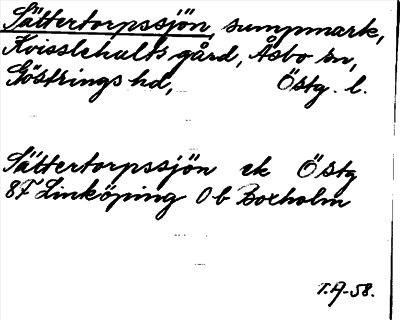 Sättertorpssjön, sumpmark,
Kvisslehults gård, Åsbo sn,
Göstrings hd, Östg. l.
Sättertorpssjön ek Östg
8F Linköping 0b Boxholm
T.A-58.